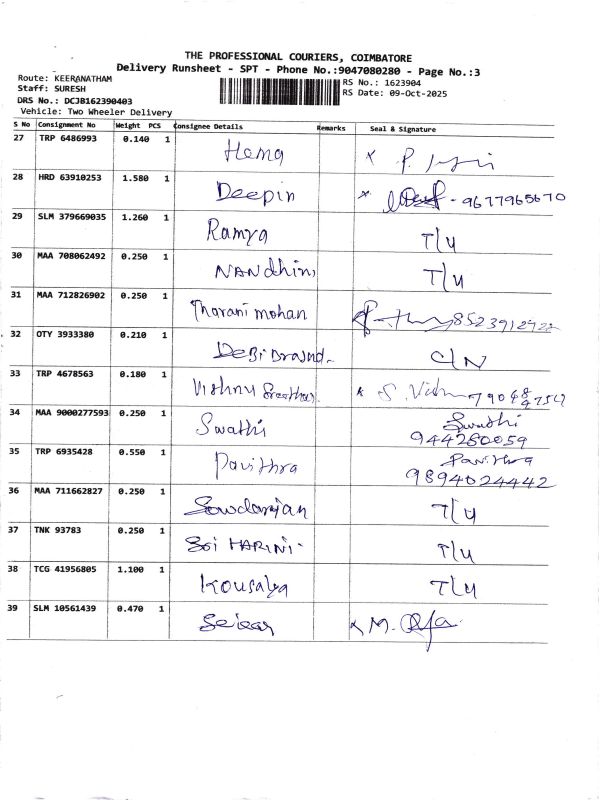 THE PROFESSIONAL COURIERS, COIMBATORE
Delivery Runsheet - SPT - Phone No.:9047080280 - Page No.:3
Route: KEERANATHAM
RS No.: 1623904
Staff: SURESH
RS Date: 09-Oct-2025
DRS No.: DCJB162390403
Vehicle: Two Wheeler Delivery
S No Consignment No Weight PCS Consignee Details Remarks Seal & Signature
27 TRP 6486993 0.140 1 Hema x P.
28 HRD 63910253 1.580 1 Deepin x - 9677965670
29 SLM 379669035 1.260 1 Ramya T/U
30 MAA 708062492 0.250 1 NANdhini T/U
31 MAA 712826902 0.250 1 Tharani mohan
32 OTY 3933380 0.210 1 C/N
33 TRP 4678563 0.180 1 Vishnu x S.
34 MAA 9000277593 0.250 1 Swathi Swathi
944280059
35 TRP 6935428 0.550 1 Pavithra Pavithra
9894024442
36 MAA 711662827 0.250 1 T/U
37 TNK 93783 0.250 1 Sri HARINI- T/U
38 TCG 41956805 1.100 1 Kousalya T/U
39 SLM 10561439 0.470 1 x M.